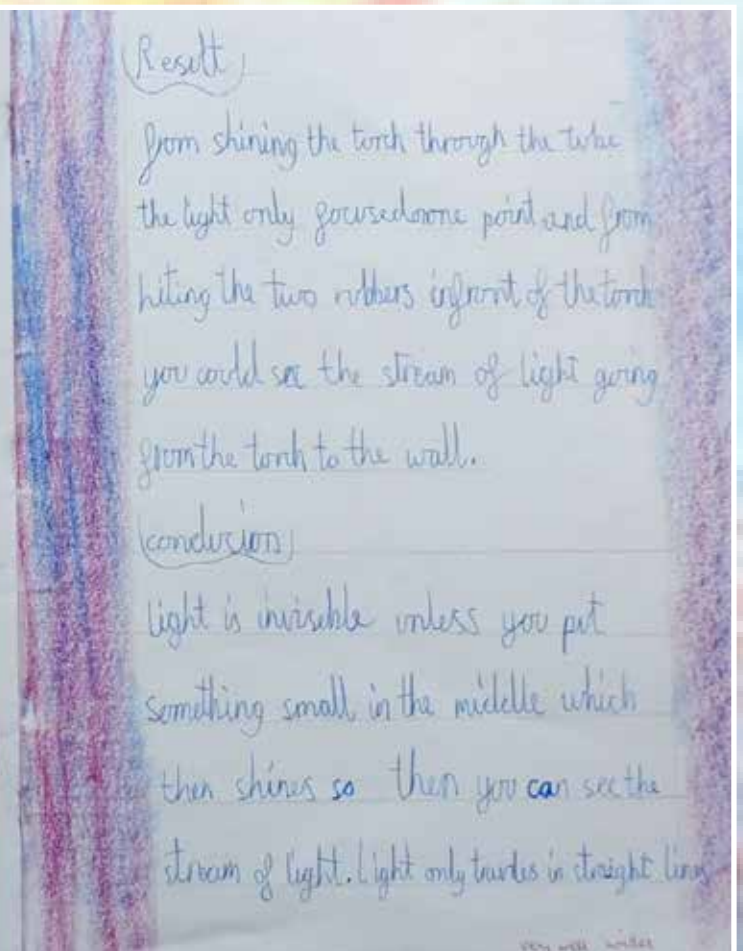 Result
from shining the torch through the tube
the light only focusedonone point and from
hiting the two rubbers infront of the torch
you could see the stream of light going
from the torch to the wall.
conclusion
Light is invisible unless you put
something small in the middle which
then shines so then you can see the
stream of light. Light only travles in straight lines
very well